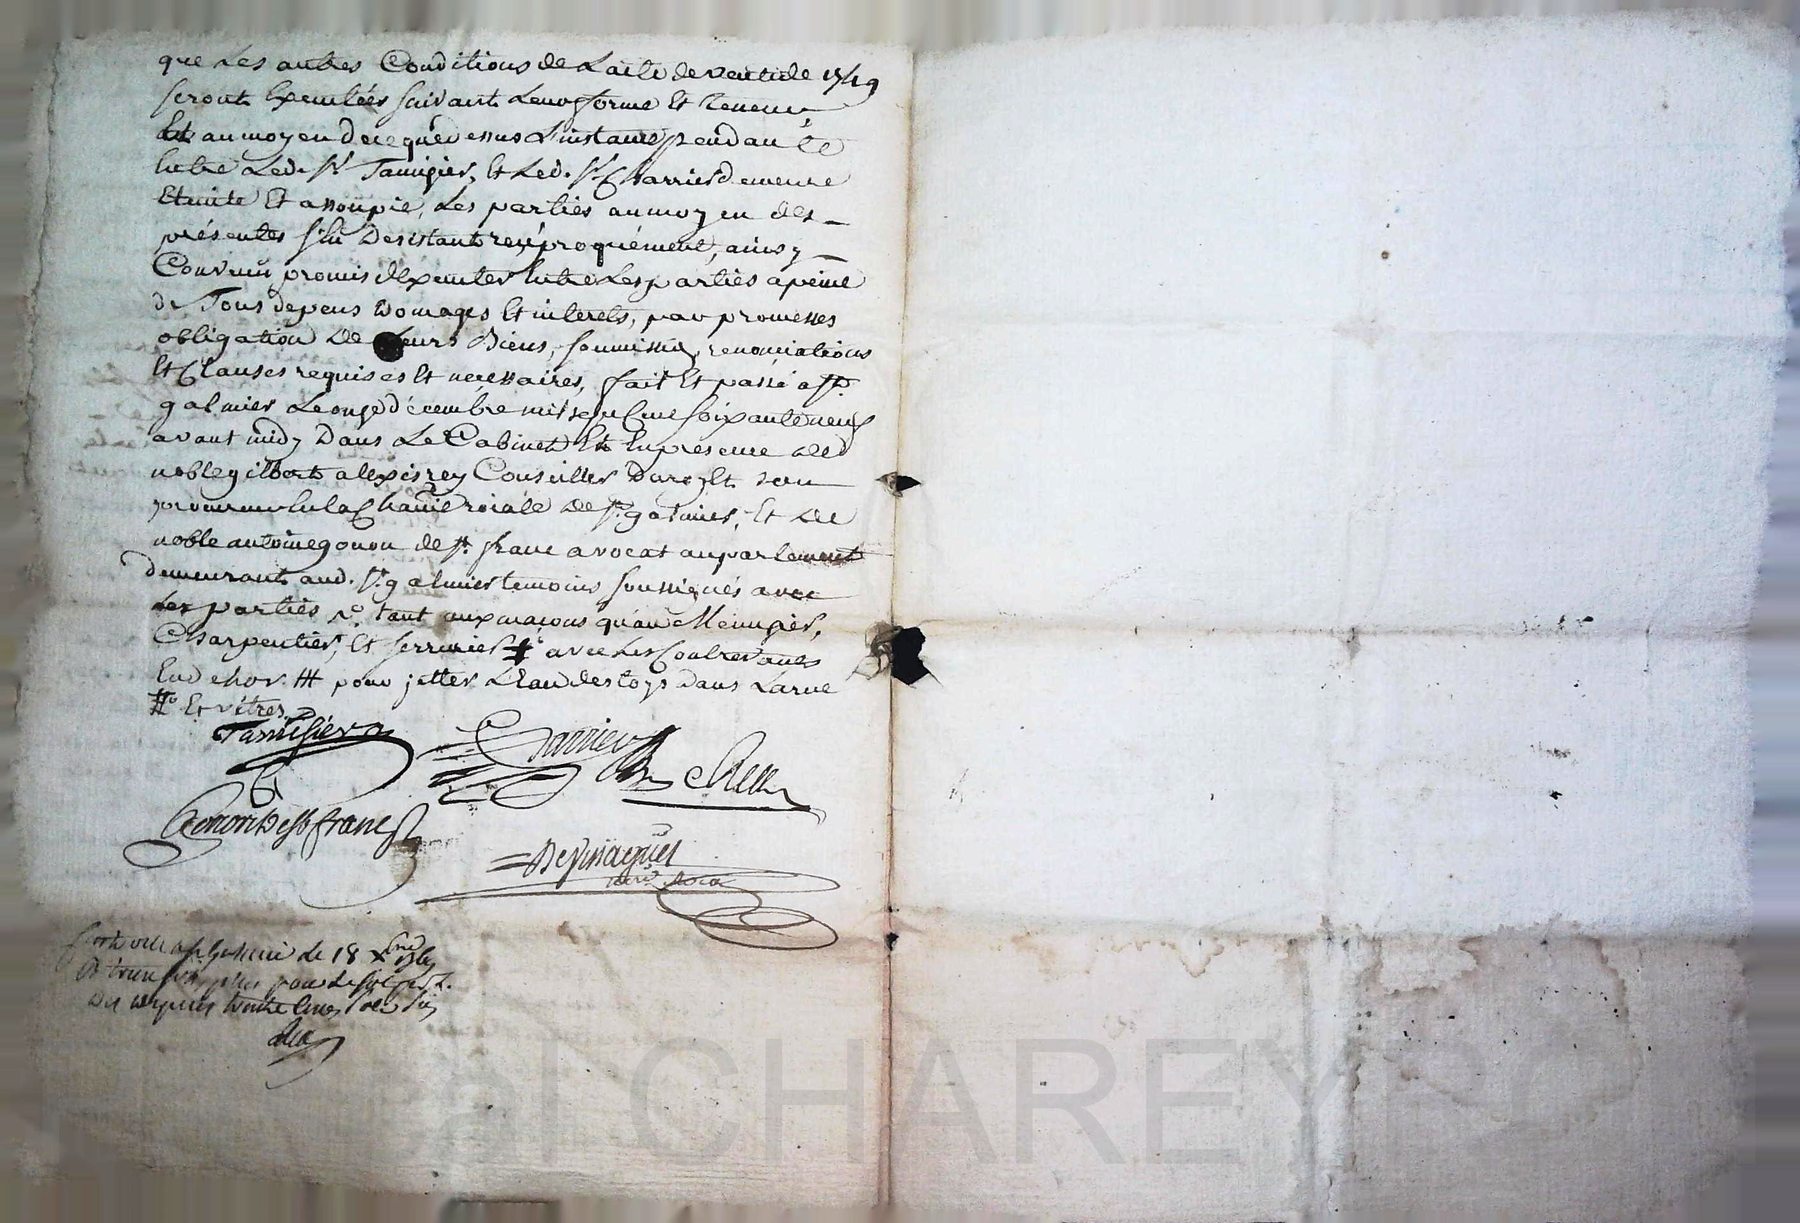 que Les autres Conditions de L'acte de vente de 1749
seront Executées suivant Leur forme Et Teneur,
Et au moyen de ce que dessus L'instance pendante
Entre Led. Sr Tamisier, Et Led. Sr Charrier demeure
Eteinte Et assoupie, Les parties au moyen des
présentes s'en Desistant reciproquement, ainsy
Convenu promis d'Executer Entre Les parties a peine
de Tous depens Domages Et interets, par promesses
obligation De Leurs Biens, soumission, renonciations
Et Clauses requises Et necessaires, fait Et passé a St.
galmier Le onze décembre mil sept Cent soixante neuf
avant midy Dans Le Cabinet Et En presence de
noble gilbert alexis rey Conseiller Du roy Et son
procureur En la Chatnie roiale De St. galmier, Et De
noble antoine gonon de St. franc avocat au parlement
demeurant aud. St. galmier temoins soussignés avec
Les parties tant aux maçons qu'au Menuzier,
Charpentier, Et serrurier # avec Les Contrevents
En dehor. ## pour jetter L'Eau des toys Dans La rue
# Et vitres
Tamisier
Charrier
Rey
Gonon De St franc
=
de 18 Xbre